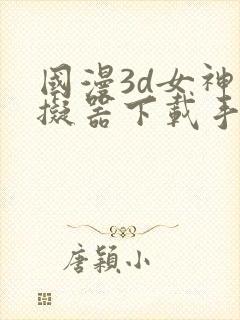 國漫3d女神
擬器下載手
唐穎小